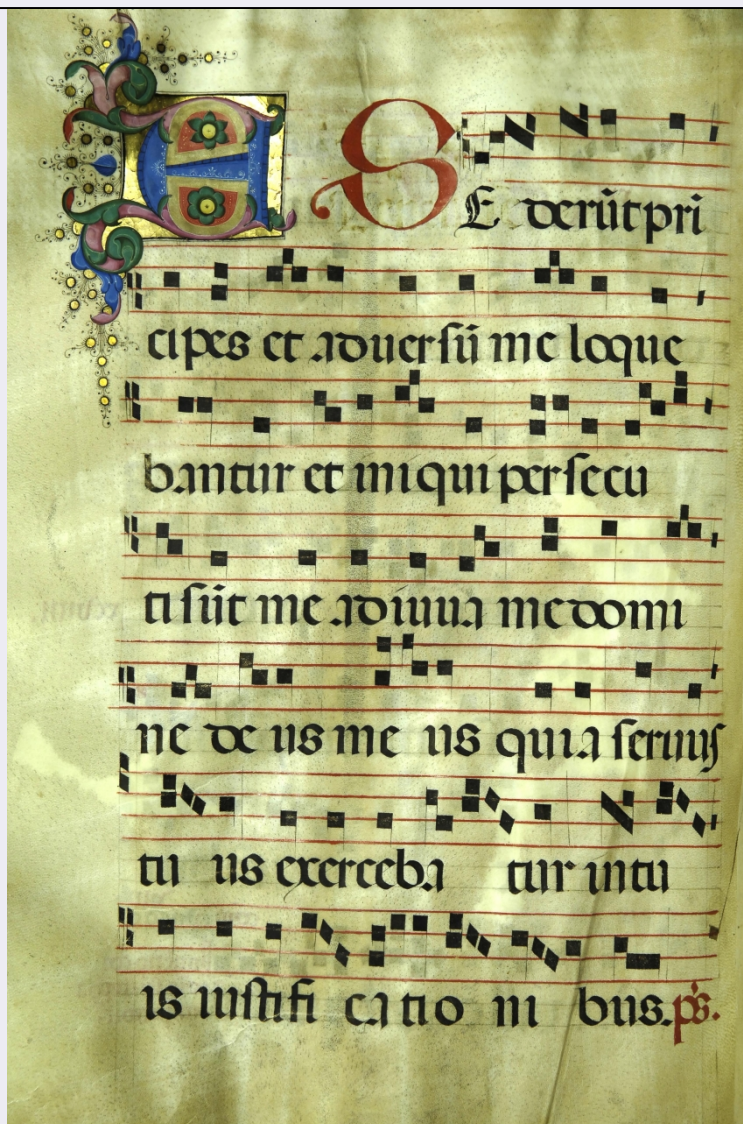 SE derūt pri
cipes et aduersū me loque
bantur et iniqui persecu
ti sūt me adiuua me domi
ne de us me us quia seruus
tu us exerceba tur in tu
is iustifi ca tio ni bus. ps.